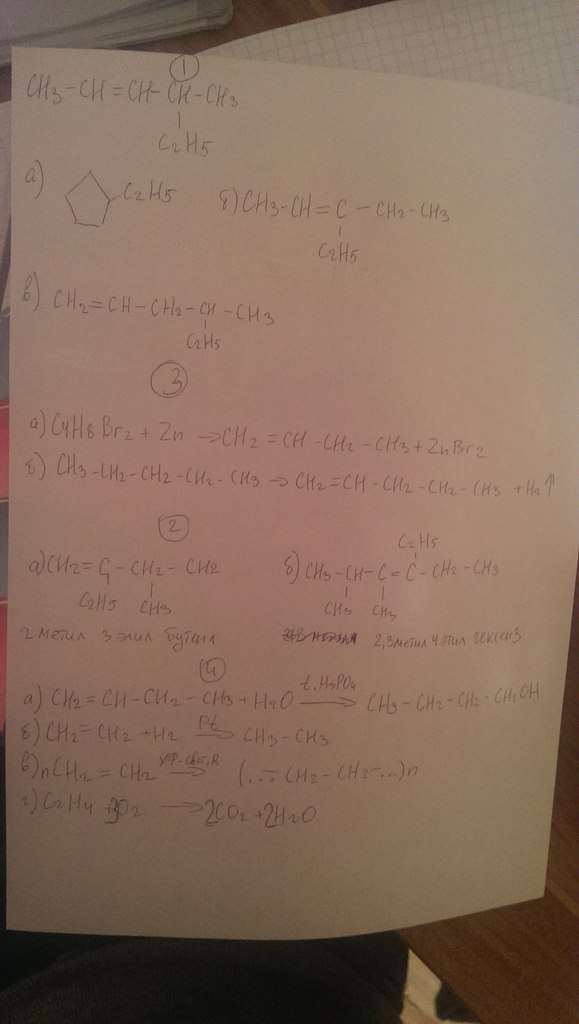 1
CH3-CH=CH-CH-CH3
C2H5
а) C2H5 б) CH3-CH=C-CH2-CH3
C2H5
в) CH2=CH-CH2-CH-CH3
C2H5
3
а) C4H8Br2+Zn→CH2=CH-CH2-CH3+ZnBr2
б) CH3-CH2-CH2-CH2-CH3→CH2=CH-CH2-CH2-CH3+H2↑
2
C2H5
а) CH2=C-CH2-CH2 б) CH3-CH-C=C-CH2-CH3
C2H5 CH3 CH3 CH3
2 метил 3 элил бутена 2,3метил 4этил гексен3
4
а) CH2=CH-CH2-CH3+H2O t,H3PO4→ CH3-CH2-CH2-CH2OH
б) CH2=CH2+H2 pt→ CH3-CH3
в) nCH2=CH2 уф-свет,R→ (...-CH2-CH2-...)n
г) C2H4+3O2→2CO2+2H2O